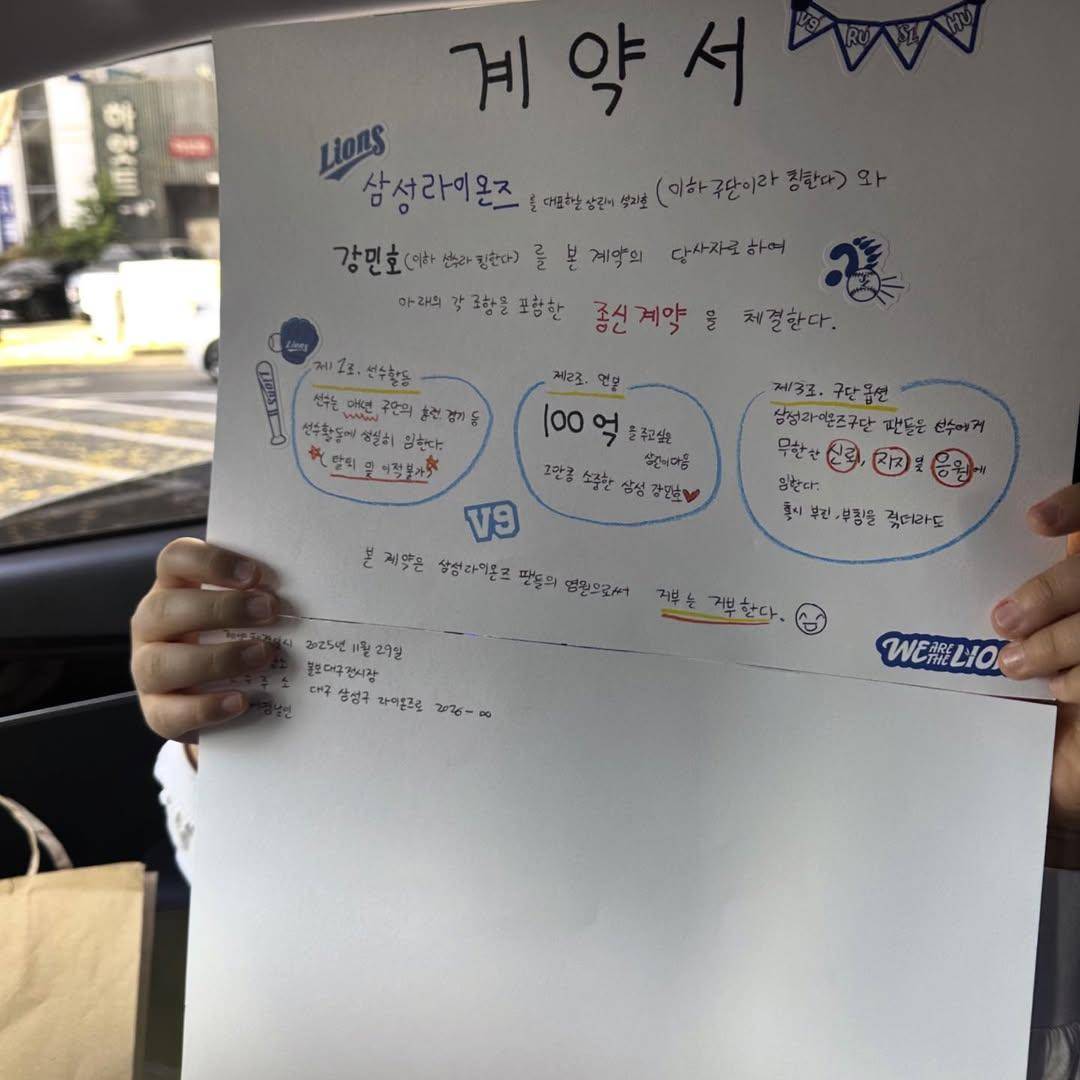 V9 RU SL HU
계약서
Lions
삼성라이온즈를 대표하는 삼린이 석지호 (이하 구단이라 칭한다) 와
강민호 (이하 선수라 칭한다) 를 본 계약의 당사자로 하여
아래의 각 조항을 포함한 종신계약을 체결한다.
Lions
LIONS
제1조. 선수활동
선수는 매년 구단의 훈련, 경기 등
선수활동에 성실히 임한다.
(탈퇴 및 이적불가)
제2조. 연봉
100억을 주고싶은
삼린이 마음
그만큼 소중한 삼성 강민호♥
제3조. 구단 옵션
삼성라이온즈구단 팬들은 선수에게
무한한 신뢰, 지지 및 응원에
임한다.
혹시 부진, 부침을 겪더라도
V9
본 계약은 삼성라이온즈 팬들의 염원으로써 거부는 거부한다.
WE ARE THE LIO
2025년 11월 29일
볼보대구전시장
주소 대구 삼성구 라이온즈로 2026-∞
하언트